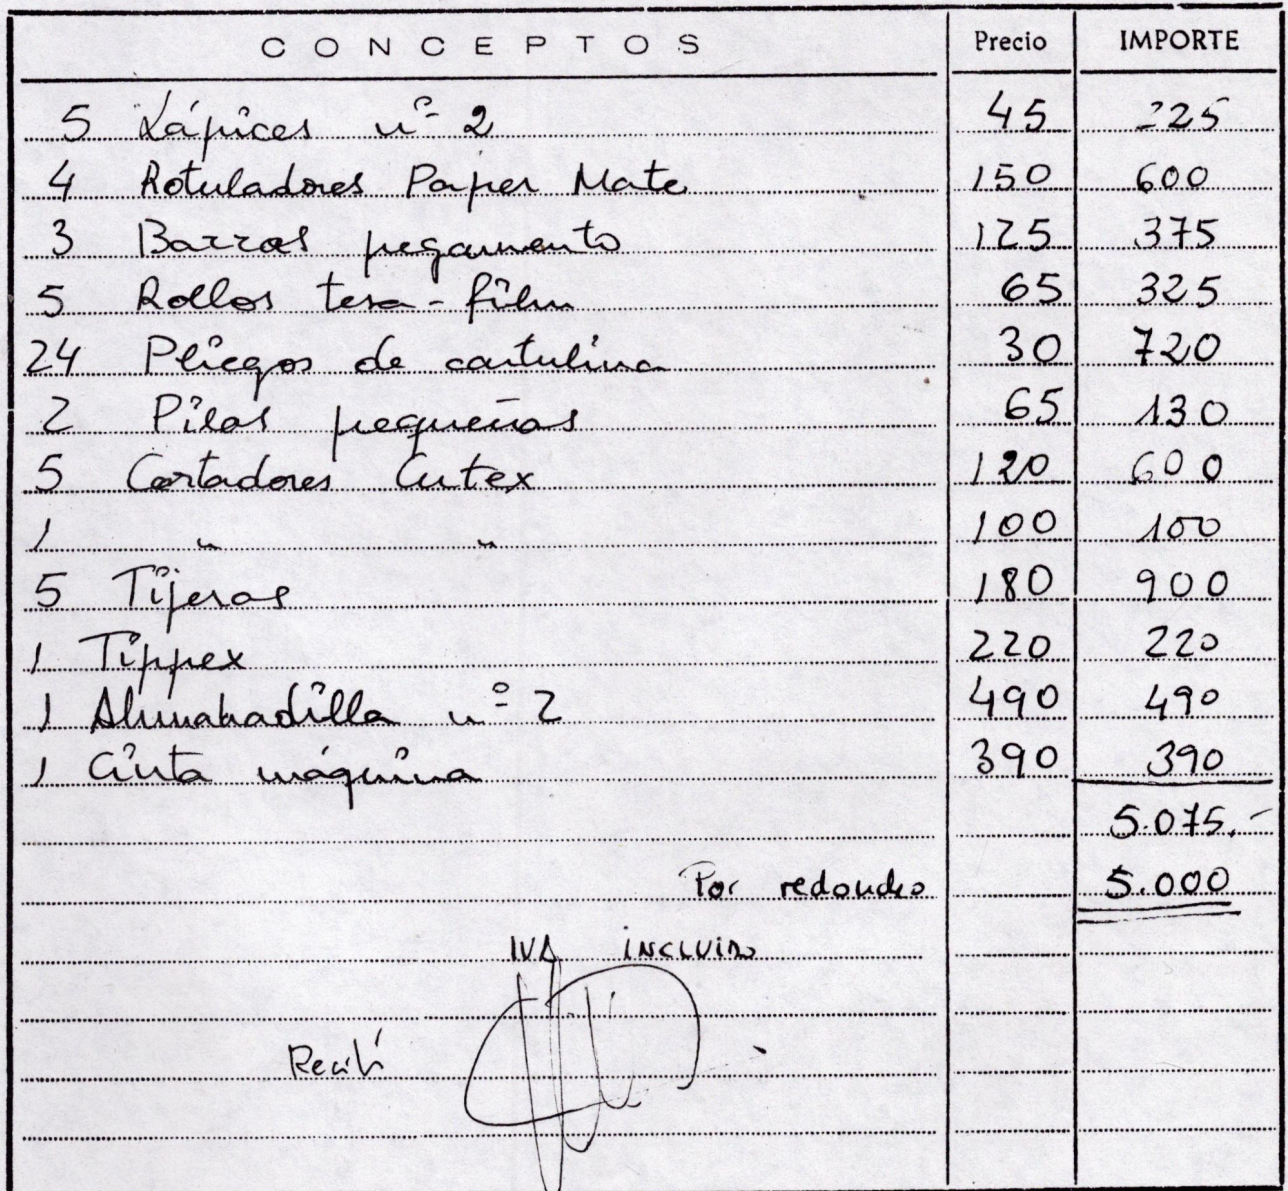 CONCEPTOS Precio IMPORTE
5 Lápices nº 2 45 225
4 Rotuladores Paper Mate 150 600
3 Barras pegamento 125 375
5 Rollos tesa-film 65 325
24 Pliegos de cartulina 30 720
2 Pilas pequeñas 65 130
5 Cortadores Cutex 120 600
1 " " 100 100
5 Tijeras 180 900
1 Tippex 220 220
1 Almohadilla nº 2 490 490
1 Cinta máquina 390 390
5.075.-
Por redondeo 5.000
IVA INCLUIDO
Recibí